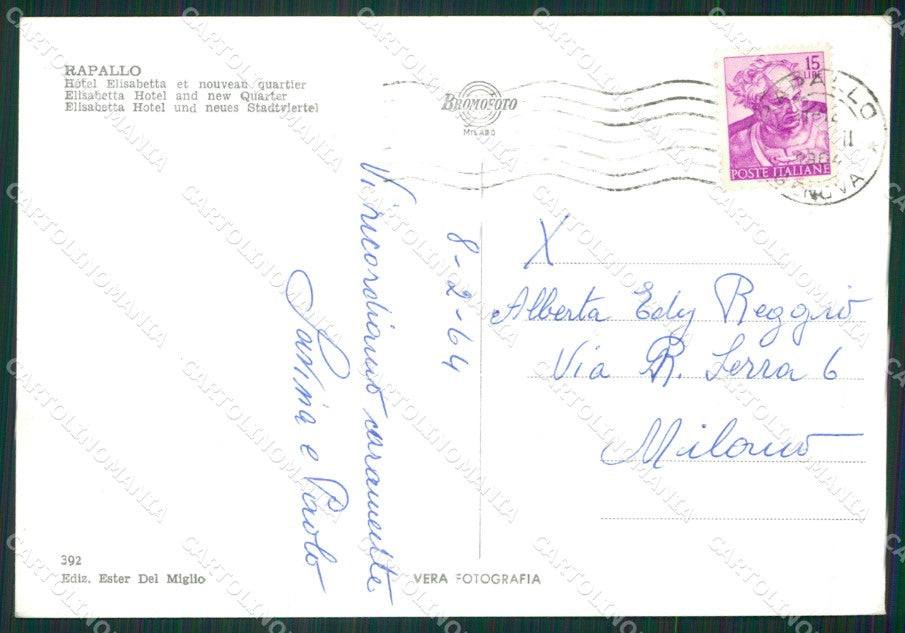 RAPALLO
Hôtel Elisabetta et nouveau quartier
Elisabetta Hotel and new Quarter
Elisabetta Hotel und neues Stadtviertel
BROMOFOTO
MILANO
15
LIRE
POSTE ITALIANE
RAPALLO
GENOVA
Vi ricordiamo caramente
e Paolo
8-2-64
X
Alberta Edy Reggio
Via R. Serra 6
Milano
392
Ediz. Ester Del Miglio
VERA FOTOGRAFIA
CARTOLINOMANIA